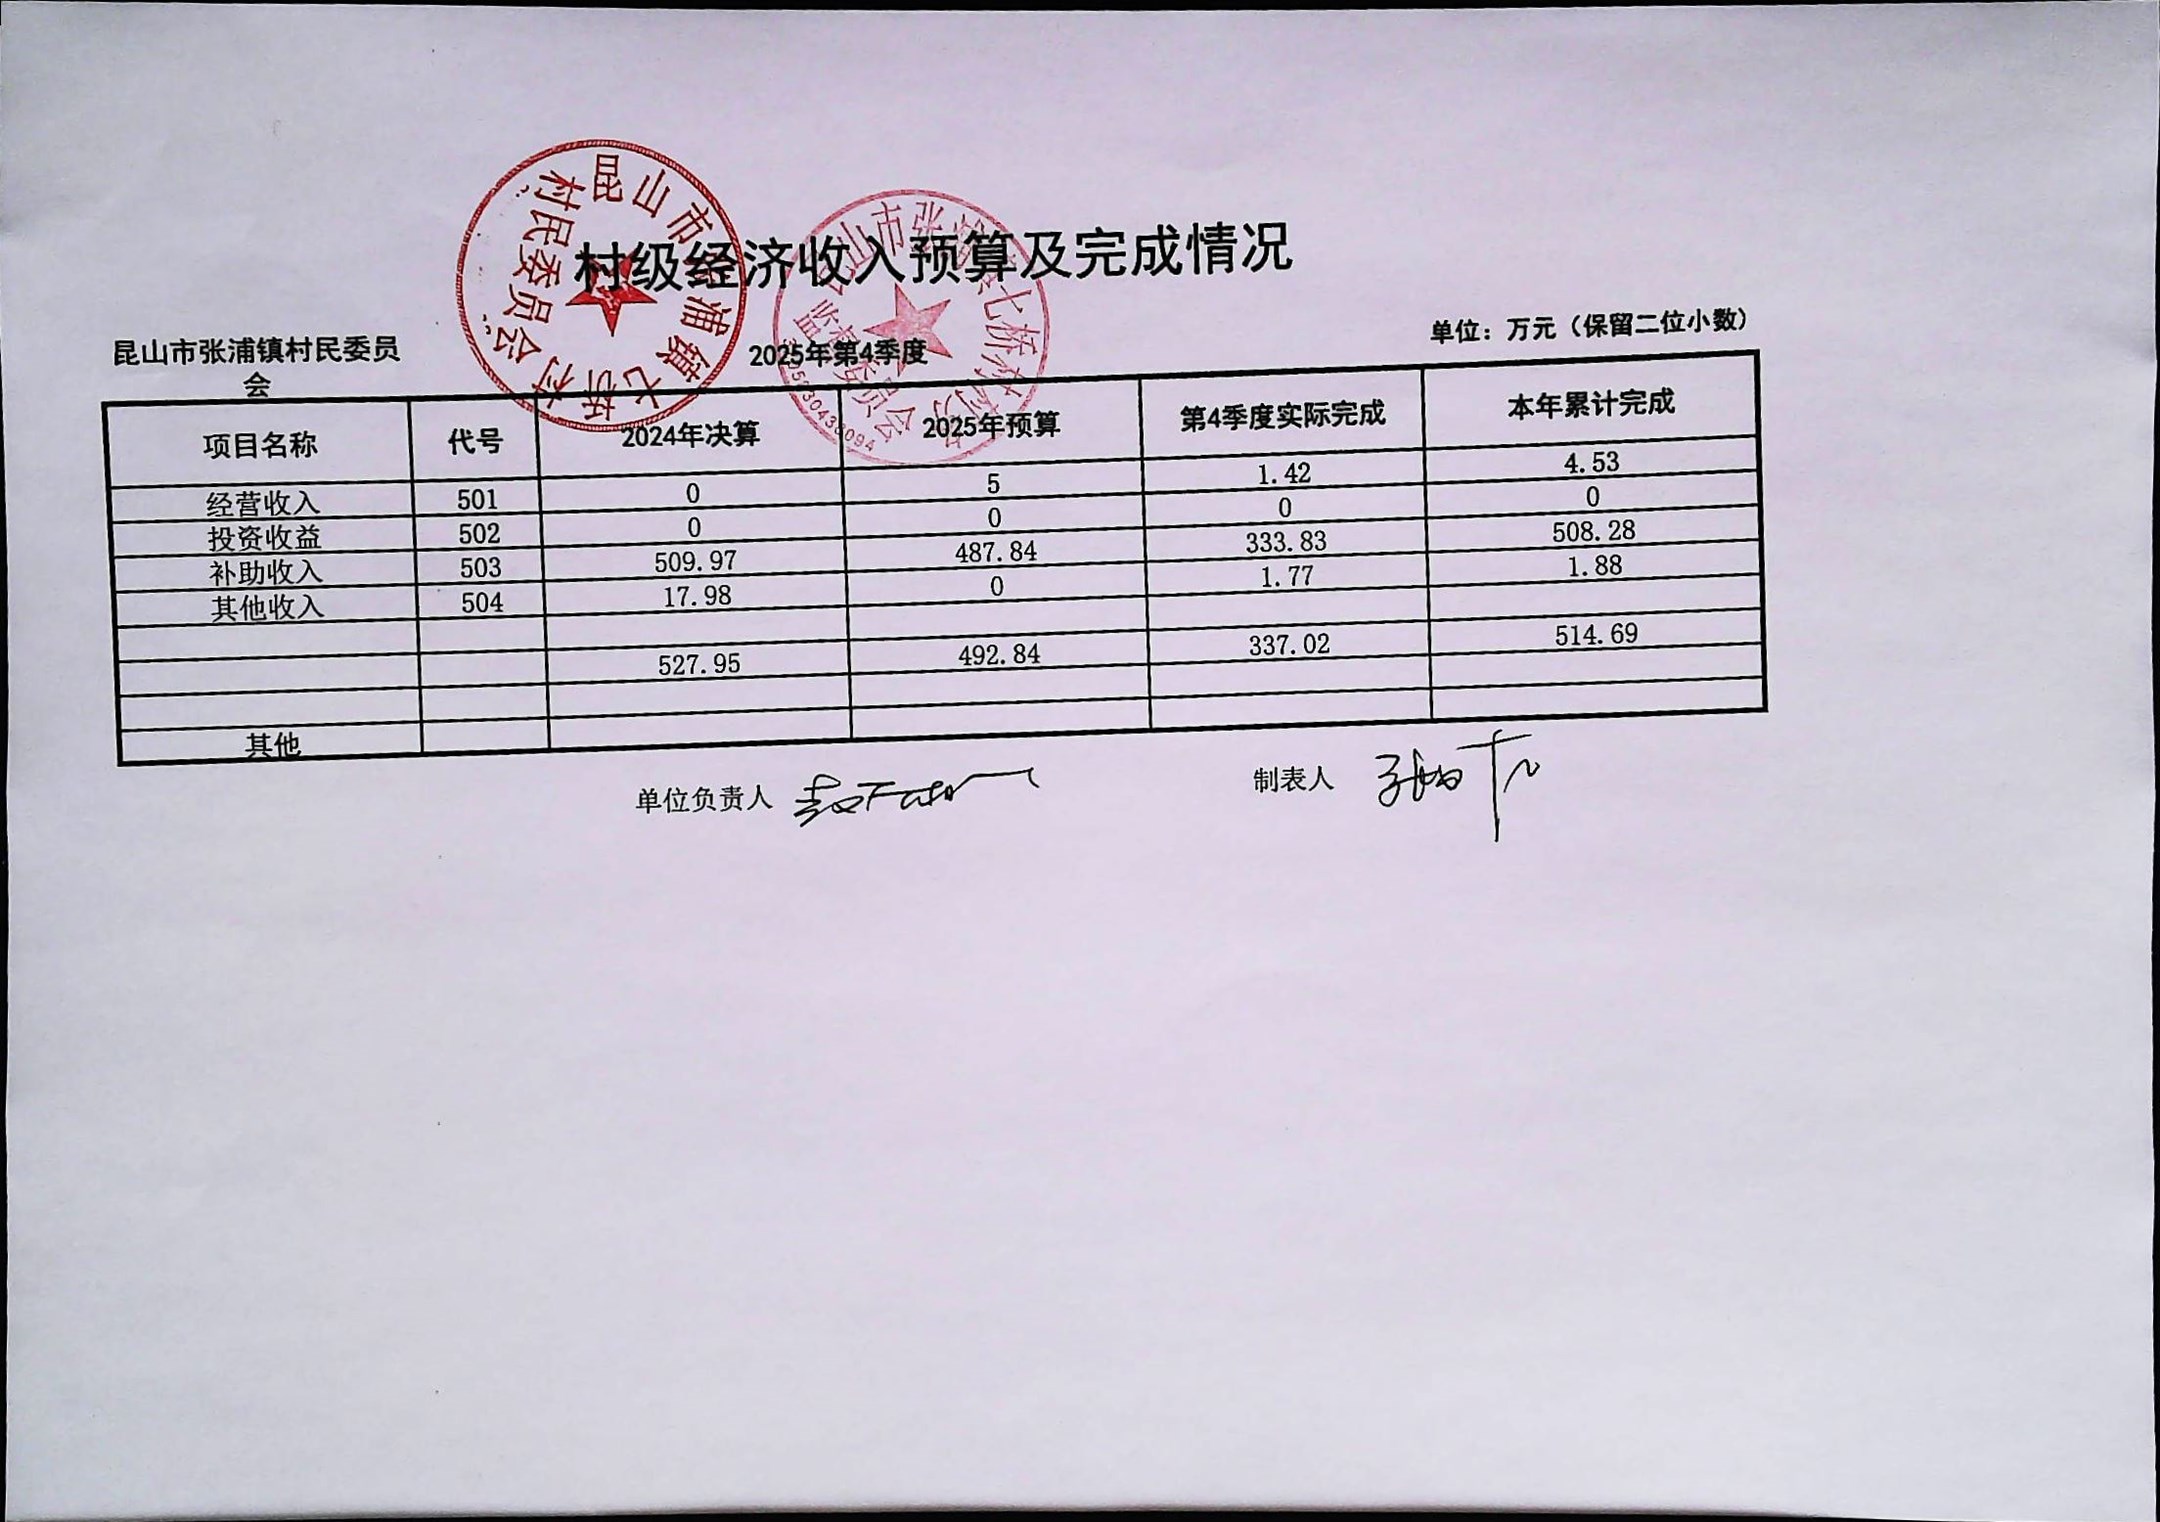 昆山市张浦镇七桥村村民委员会
村级经济收入预算及完成情况
昆山市张浦镇村民委员会
2025年第4季度
单位：万元（保留二位小数）
项目名称 代号 2024年决算 2025年预算 第4季度实际完成 本年累计完成
经营收入 501 0 5 1.42 4.53
投资收益 502 0 0 0 0
补助收入 503 509.97 487.84 333.83 508.28
其他收入 504 17.98 0 1.77 1.88
527.95 492.84 337.02 514.69
其他
单位负责人
制表人